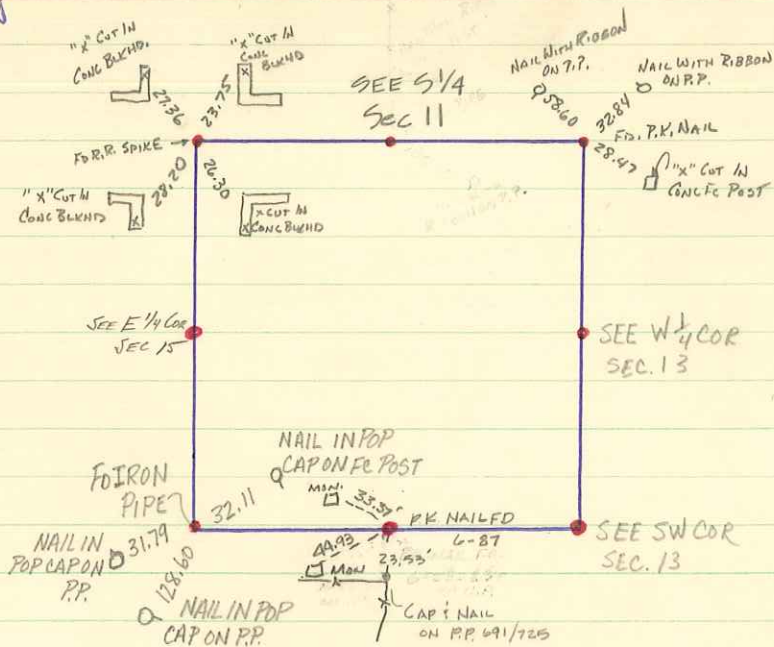 "X" CUT IN
CONC BLKHD.
27.36
"X" CUT IN
CONC
BLKHD
23.75
SEE S 1/4
Sec 11
NAIL WITH RIBBON
ON P.P.
58.60
NAIL WITH RIBBON
ON P.P.
32.84
FD. P.K. NAIL
28.47
"X" CUT IN
CONC FC POST
FD R.R. SPIKE
28.20
26.30
"X" CUT IN
CONC BLKHD
X CUT IN
CONC BLKHD
SEE E 1/4 COR
SEC 15
SEE W 1/4 COR
SEC. 13
NAIL IN POP
CAP ON FC POST
FD IRON
PIPE
32.11
MON.
33.37'
P.K. NAIL FD
6-87
SEE SW COR
SEC. 13
NAIL IN
POP CAP ON
P.P.
31.79
128.60
NAIL IN POP
CAP ON P.P.
44.93
MON
23.53'
CAP & NAIL
ON P.P. 691/725